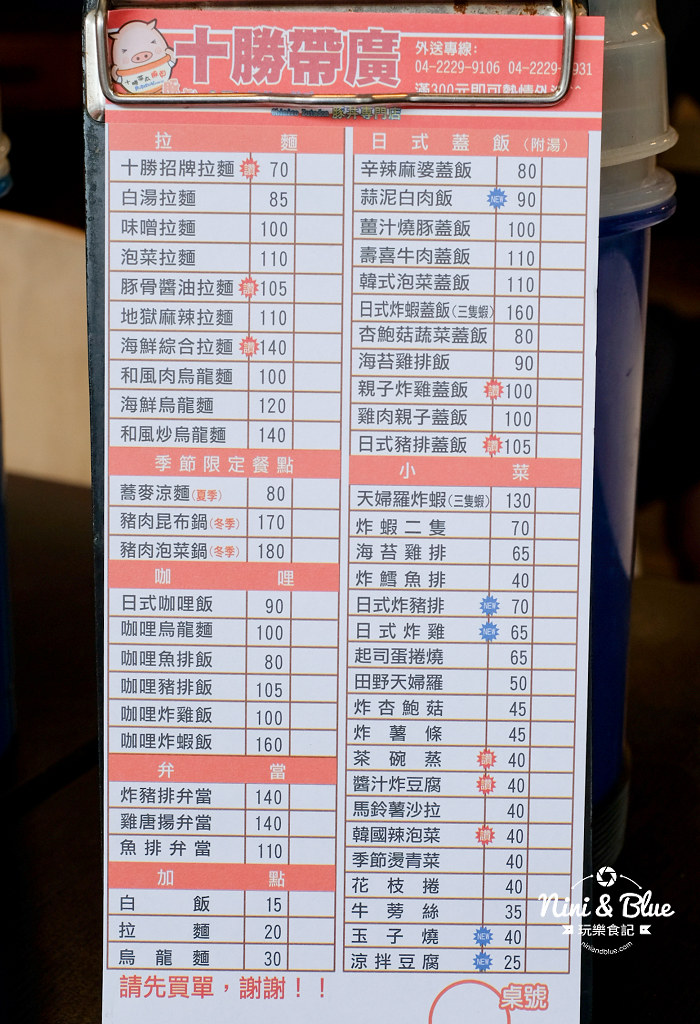 十勝帶廣
外送專線:
04-2229-9106 04-2229-
931
滿300元即可
豚丼專門店
拉 麵
十勝招牌拉麵 讚 70
白湯拉麵 85
味噌拉麵 100
泡菜拉麵 110
豚骨醬油拉麵 讚 105
地獄麻辣拉麵 110
海鮮綜合拉麵 讚 140
和風肉烏龍麵 100
海鮮烏龍麵 120
和風炒烏龍麵 140
季節限定餐點
蕎麥涼麵(夏季) 80
豬肉昆布鍋(冬季) 170
豬肉泡菜鍋(冬季) 180
咖 哩
日式咖哩飯 90
咖哩烏龍麵 100
咖哩魚排飯 80
咖哩豬排飯 105
咖哩炸雞飯 100
咖哩炸蝦飯 160
弁 當
炸豬排弁當 140
雞唐揚弁當 140
魚排弁當 110
加 點
白 飯 15
拉 麵 20
烏 龍 麵 30
請先買單，謝謝！！
日 式 蓋 飯 (附湯)
辛辣麻婆蓋飯 80
蒜泥白肉飯 NEW 90
薑汁燒豚蓋飯 100
壽喜牛肉蓋飯 110
韓式泡菜蓋飯 110
日式炸蝦蓋飯(三隻蝦) 160
杏鮑菇蔬菜蓋飯 80
海苔雞排飯 90
親子炸雞蓋飯 讚 100
雞肉親子蓋飯 100
日式豬排蓋飯 讚 105
小 菜
天婦羅炸蝦(三隻蝦) 130
炸蝦二隻 70
海苔雞排 65
炸鱈魚排 40
日式炸豬排 NEW 70
日式炸雞 NEW 65
起司蛋捲燒 65
田野天婦羅 50
炸杏鮑菇 45
炸薯條 45
茶碗蒸 讚 40
醬汁炸豆腐 讚 40
馬鈴薯沙拉 40
韓國辣泡菜 讚 40
季節燙青菜 40
花枝捲 40
牛蒡絲 35
玉子燒 NEW 40
涼拌豆腐 NEW 25
桌號
Nini & Blue
玩樂食記
niniandblue.com